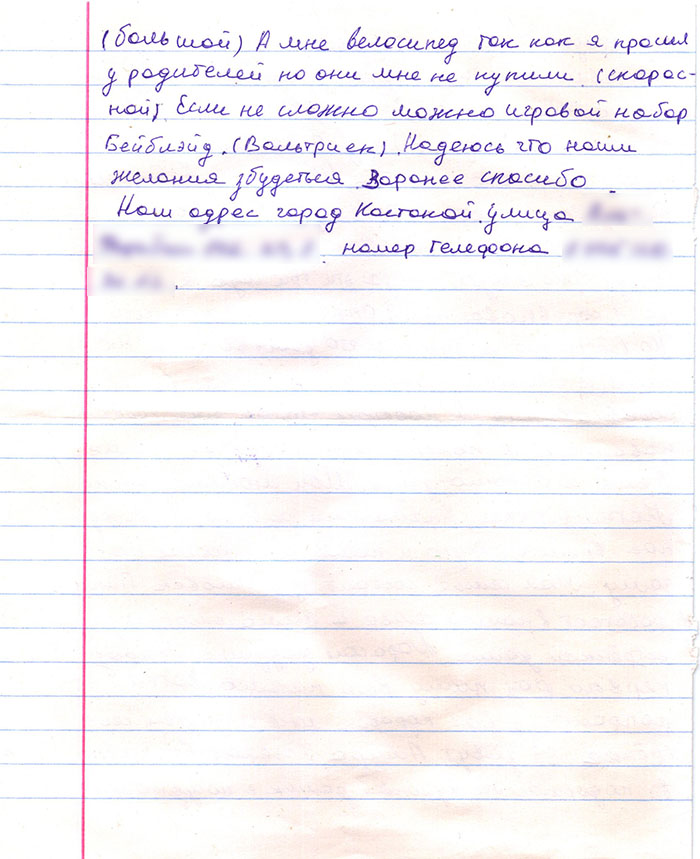 (большой) А мне велосипед так как я просил
у родителей но они мне не купили. (скорас-
ной) Если не сложно можно игровой набор
Бейблэйд. (Вальтриек). Надеюсь что наши
желания збудеться. Заранее спасибо
Наш адрес город Костоной. улица
номер телефона